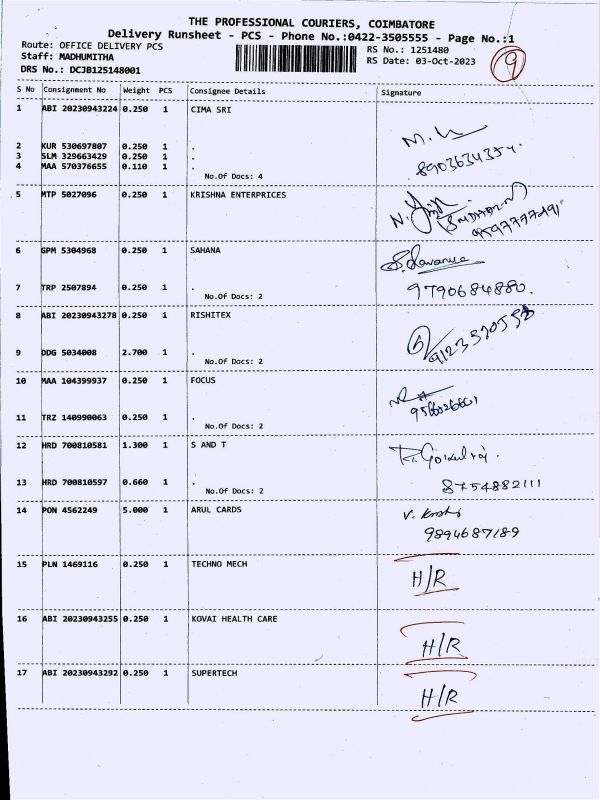 THE PROFESSIONAL COURIERS, COIMBATORE
Delivery Runsheet - PCS - Phone No.:0422-3505555 - Page No.:1
Route: OFFICE DELIVERY PCS
RS No.: 1251480
Staff: MADHUMITHA
RS Date: 03-Oct-2023
DRS No.: DCJB125148001
9
S No Consignment No Weight PCS Consignee Details Signature
1 ABI 20230943224 0.250 1 CIMA SRI
2 KUR 530697807 0.250 1 .
3 SLM 329663429 0.250 1 .
4 MAA 570376655 0.110 1 .
8903634354.
No.Of Docs: 4
5 MTP 5027096 0.250 1 KRISHNA ENTERPRICES
6 GPM 5304968 0.250 1 SAHANA
S. Lavanya
7 TRP 2507894 0.250 1 . 9790684880.
No.Of Docs: 2
8 ABI 20230943278 0.250 1 RISHITEX
9 DDG 5034008 2.700 1 .
No.Of Docs: 2
10 MAA 104399937 0.250 1 FOCUS
11 TRZ 140990063 0.250 1 .
No.Of Docs: 2
12 HRD 700810581 1.300 1 S AND T
13 HRD 700810597 0.660 1 . 8754882111
No.Of Docs: 2
14 PON 4562249 5.000 1 ARUL CARDS
9894687189
15 PLN 1469116 0.250 1 TECHNO MECH
H/R
16 ABI 20230943255 0.250 1 KOVAI HEALTH CARE
H/R
17 ABI 20230943292 0.250 1 SUPERTECH
H/R